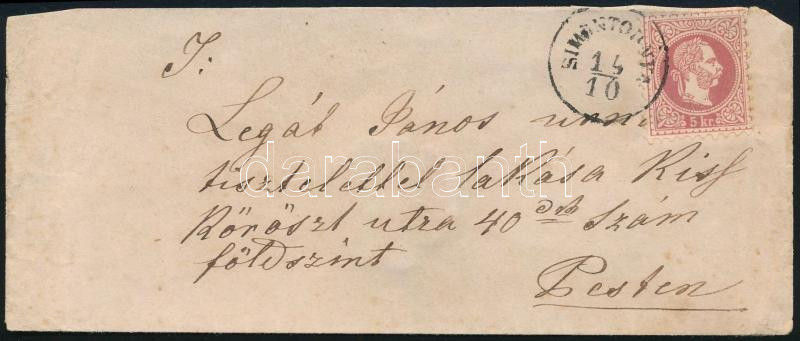 T:
SIMONTORNYA
14
10
5 kr
Legát János urnak
tisztelettel lakása Kiss
Köröszt utza 40 dik szám
földszint
Pesten
darabanth